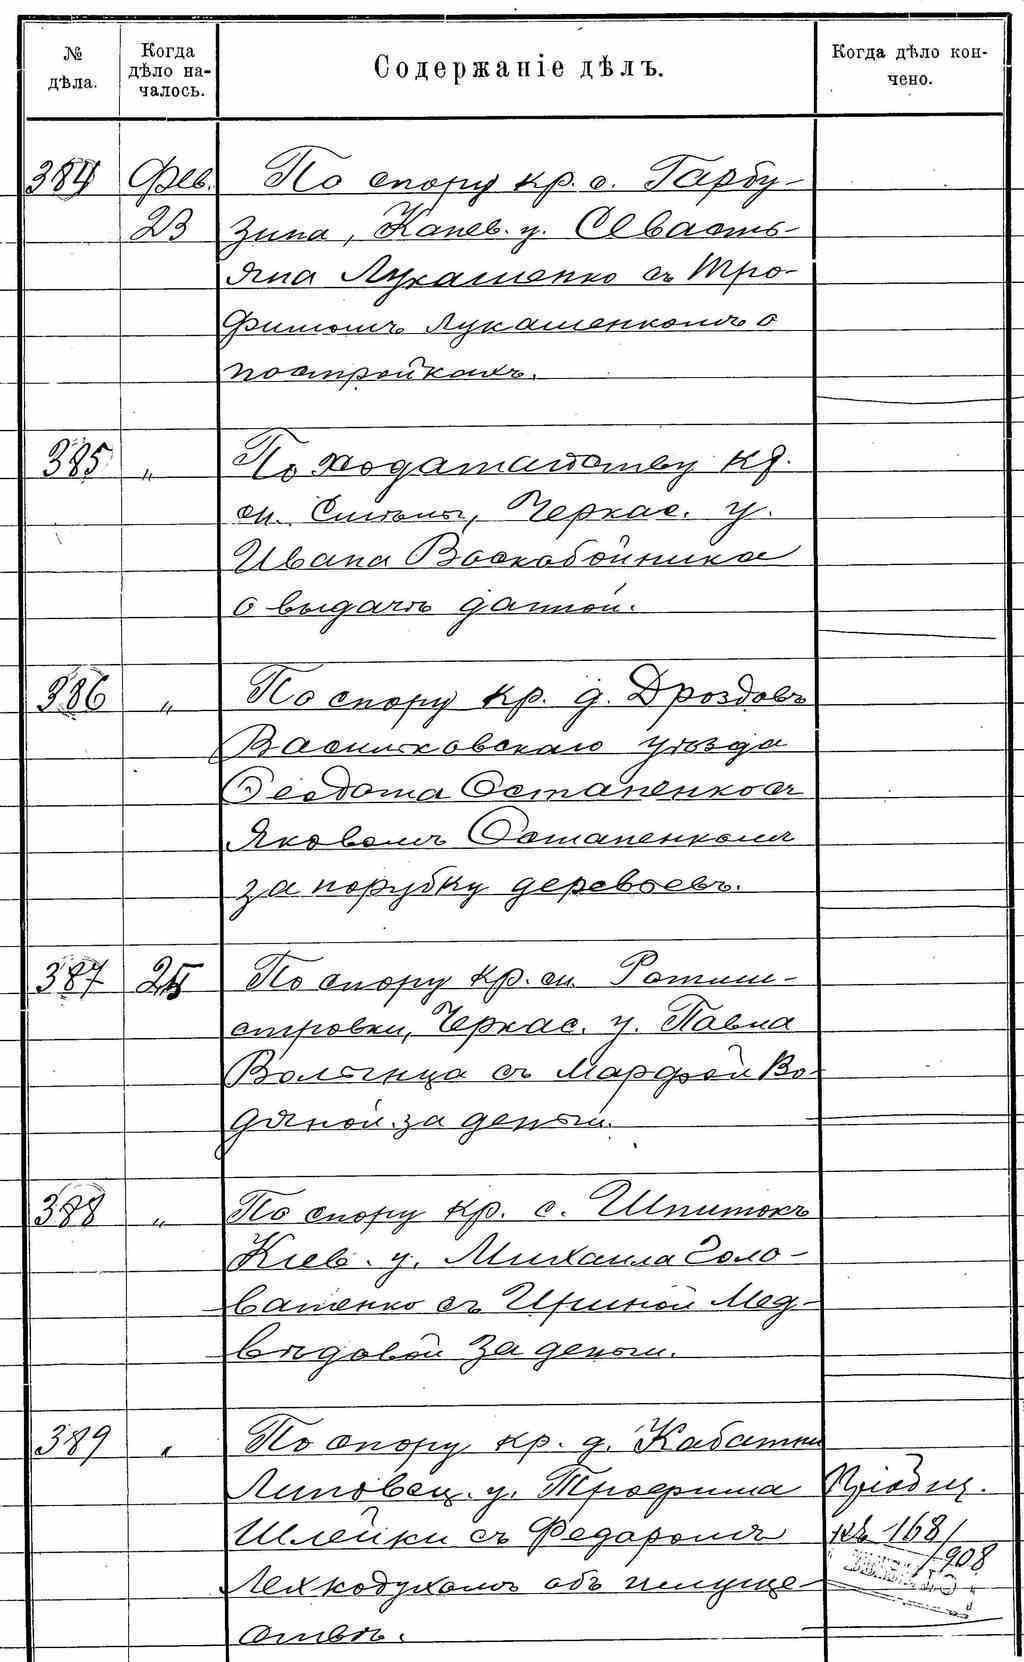 № дѣла.
Когда дѣло на-
чалось.
Содержаніе дѣлъ.
Когда дѣло кон-
чено.
384 Фев. По спору кр. с. Гарбу-
23 зина, Канев. у. Севасть-
яна Лукашенко съ Тро-
фимомъ Лукашенкомъ о
постройкахъ.
385 „ По ходатайству кр.
м. Смѣлы, Черкас. у.
Ивана Воскобойника
о выдачѣ данной.
386 „ По спору кр. д. Дроздовъ
Васильковскаго уѣзда
Ѳеодота Остапенко съ
Яковомъ Остапенкомъ
за порубку деревьевъ.
387 25 По спору кр. м. Ротми-
стровки, Черкас. у. Павла
Волынца съ Марфой Во-
дяной за деньги.
388 „ По спору кр. с. Шпитокъ
Кіев. у. Михаила Голо-
ватенко съ Ириной Мед-
вѣдовой за деньги.
389 „ По спору кр. д. Кабатни
Липовец. у. Трофима Пріобщ.
Шлейки съ Федоромъ къ 168/
908
Легкодухомъ объ имуще-
ствѣ.